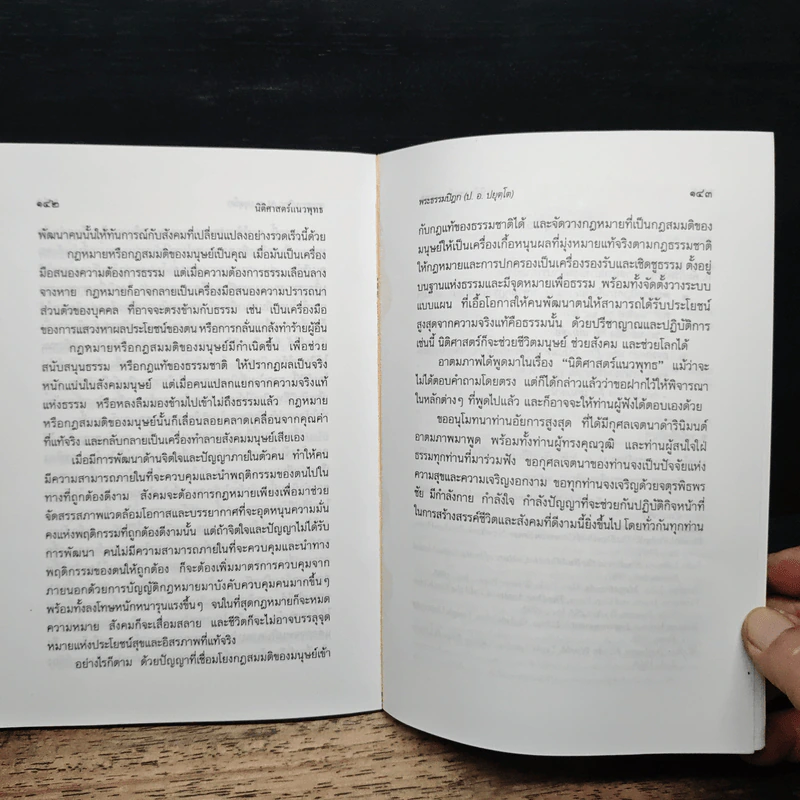 ๑๔๒
นิติศาสตร์แนวพุทธ
พัฒนาคนนั้นให้ทันการณ์กับสังคมที่เปลี่ยนแปลงอย่างรวดเร็วนี้ด้วย
กฎหมายหรือกฎสมมติของมนุษย์เป็นคุณ เมื่อมันเป็นเครื่อง
มือสนองความต้องการธรรม แต่เมื่อความต้องการธรรมเลือนลาง
จางหาย กฎหมายก็อาจกลายเป็นเครื่องมือสนองความปรารถนา
ส่วนตัวของบุคคล ที่อาจจะตรงข้ามกับธรรม เช่น เป็นเครื่องมือ
ของการแสวงหาผลประโยชน์ของตน หรือการกลั่นแกล้งทำร้ายผู้อื่น
กฎหมายหรือกฎสมมติของมนุษย์มีกำเนิดขึ้น เพื่อช่วย
สนับสนุนธรรม หรือกฎแท้ของธรรมชาติ ให้ปรากฏผลเป็นจริง
หนักแน่นในสังคมมนุษย์ แต่เมื่อคนแปลกแยกจากความจริงแท้
แห่งธรรม หรือหลงลืมมองข้ามไปเข้าไม่ถึงธรรมแล้ว กฎหมาย
หรือกฎสมมติของมนุษย์นั้นก็เลื่อนลอยคลาดเคลื่อนจากคุณค่า
ที่แท้จริง และกลับกลายเป็นเครื่องทำลายสังคมมนุษย์เสียเอง
เมื่อมีการพัฒนาด้านจิตใจและปัญญาภายในตัวคน ทำให้คน
มีความสามารถภายในที่จะควบคุมและนำพฤติกรรมของตนไปใน
ทางที่ถูกต้องดีงาม สังคมจะต้องการกฎหมายเพียงเพื่อมาช่วย
จัดสรรสภาพแวดล้อมโอกาสและบรรยากาศที่จะอุดหนุนความมั่น
คงแห่งพฤติกรรมที่ถูกต้องดีงามนั้น แต่ถ้าจิตใจและปัญญาไม่ได้รับ
การพัฒนา คนไม่มีความสามารถภายในที่จะควบคุมและนำทาง
พฤติกรรมของตนให้ถูกต้อง ก็จะต้องเพิ่มมาตรการควบคุมจาก
ภายนอกด้วยการบัญญัติกฎหมายมาบังคับควบคุมคนมากขึ้นๆ
พร้อมทั้งลงโทษหนักหนารุนแรงขึ้นๆ จนในที่สุดกฎหมายก็จะหมด
ความหมาย สังคมก็จะเสื่อมสลาย และชีวิตก็จะไม่อาจบรรลุจุด
หมายแห่งประโยชน์สุขและอิสรภาพที่แท้จริง
อย่างไรก็ตาม ด้วยปัญญาที่เชื่อมโยงกฎสมมติของมนุษย์เข้า
พระธรรมปิฎก (ป. อ. ปยุตฺโต)
๑๔๓
กับกฎแท้ของธรรมชาติได้ และจัดวางกฎหมายที่เป็นกฎสมมติของ
มนุษย์ให้เป็นเครื่องเกื้อหนุนผลที่มุ่งหมายแท้จริงตามกฎธรรมชาติ
ให้กฎหมายและการปกครองเป็นเครื่องรองรับและเชิดชูธรรม ตั้งอยู่
บนฐานแห่งธรรมและมีจุดหมายเพื่อธรรม พร้อมทั้งจัดตั้งวางระบบ
แบบแผน ที่เอื้อโอกาสให้คนพัฒนาตนให้สามารถได้รับประโยชน์
สูงสุดจากความจริงแท้คือธรรมนั้น ด้วยปรีชาญาณและปฏิบัติการ
เช่นนี้ นิติศาสตร์ก็จะช่วยชีวิตมนุษย์ ช่วยสังคม และช่วยโลกได้
อาตมภาพได้พูดมาในเรื่อง “นิติศาสตร์แนวพุทธ” แม้ว่าจะ
ไม่ได้ตอบคำถามโดยตรง แต่ก็ได้กล่าวแล้วว่าขอฝากไว้ให้พิจารณา
ในหลักต่างๆ ที่พูดไปแล้ว และก็อาจจะให้ท่านผู้ฟังได้ตอบเองด้วย
ขออนุโมทนาท่านอัยการสูงสุด ที่ได้มีกุศลเจตนาดำรินิมนต์
อาตมภาพมาพูด พร้อมทั้งท่านผู้ทรงคุณวุฒิ และท่านผู้สนใจใฝ่
ธรรมทุกท่านที่มาร่วมฟัง ขอกุศลเจตนาของท่านจงเป็นปัจจัยแห่ง
ความสุขและความเจริญงอกงาม ขอทุกท่านจงเจริญด้วยจตุรพิธพร
ชัย มีกำลังกาย กำลังใจ กำลังปัญญาที่จะช่วยกันปฏิบัติกิจหน้าที่
ในการสร้างสรรค์ชีวิตและสังคมที่ดีงามนี้ยิ่งขึ้นไป โดยทั่วกันทุกท่าน